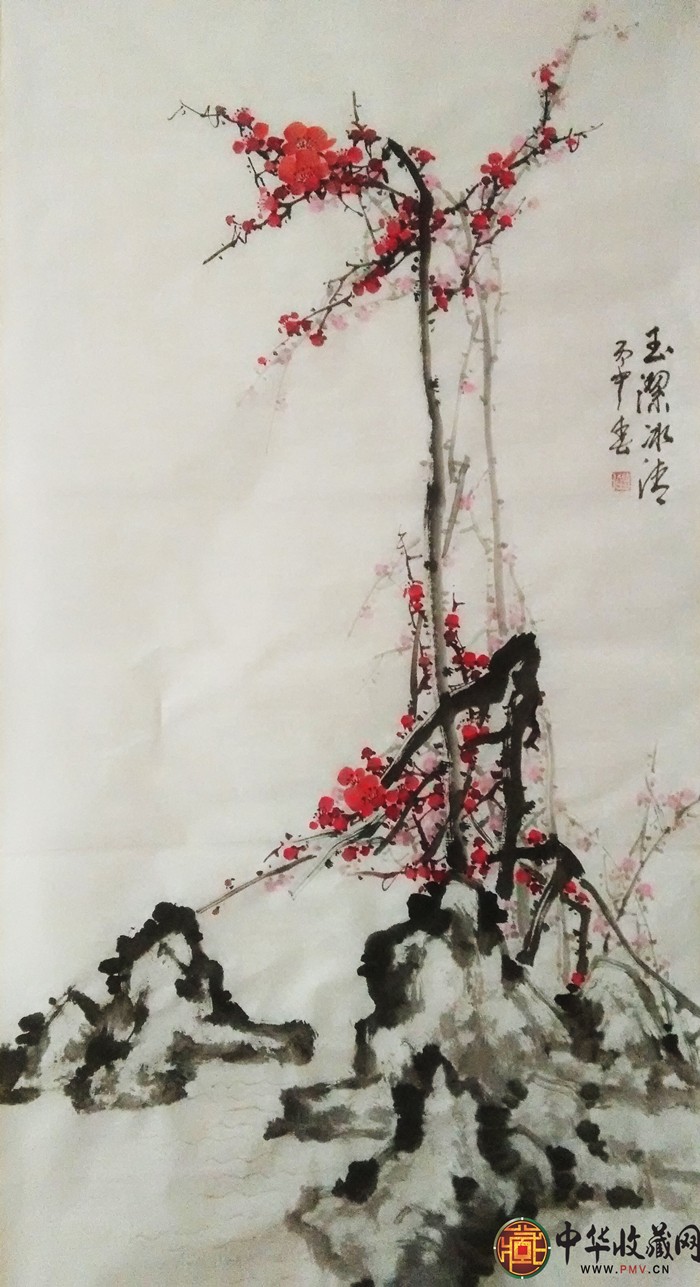 玉潔冰清
丙申春
中华收藏网
WWW.PMV.CN